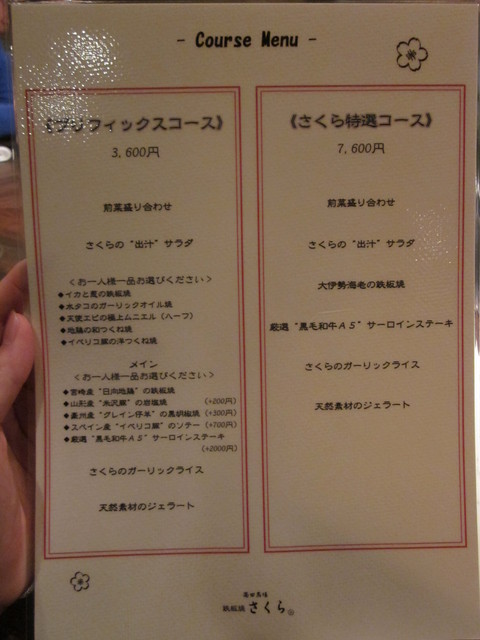 - Course Menu -
《プリフィックスコース》
3,600円
前菜盛り合わせ
さくらの"出汁"サラダ
<お一人様一品お選びください>
◆イカと葱の鉄板焼
◆水タコのガーリックオイル焼
◆天使エビの極上ムニエル(ハーフ)
◆地鶏の和つくね焼
◆イベリコ豚の洋つくね焼
メイン
<お一人様一品お選びください>
◆宮崎産"日向地鶏"の鉄板焼
◆山形産"米沢豚"の岩塩焼 (+200円)
◆豪州産"グレイン仔羊"の黒胡椒焼 (+300円)
◆スペイン産"イベリコ豚"のソテー (+700円)
◆厳選"黒毛和牛A5"サーロインステーキ
(+2000円)
さくらのガーリックライス
天然素材のジェラート
《さくら特選コース》
7,600円
前菜盛り合わせ
さくらの"出汁"サラダ
大伊勢海老の鉄板焼
厳選"黒毛和牛A5"サーロインステーキ
さくらのガーリックライス
天然素材のジェラート
鉄板焼 さくら